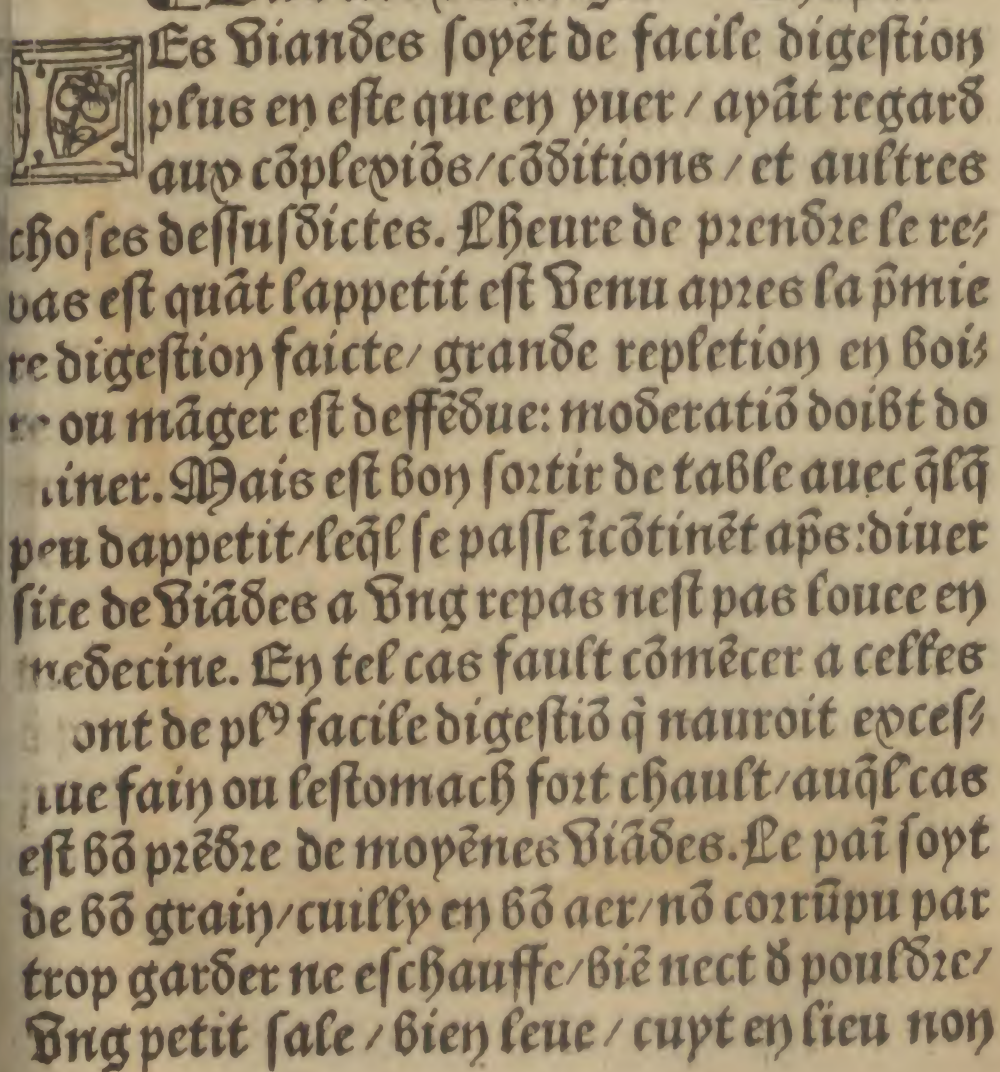 LEs viandes soyẽt de facile digestion
plus en este que en yuer / ayãt regard
aux cõplexiõs / cõditions / et aultres
choses dessusdictes. Lheure de prendre le re⸗
pas est quãt lappetit est venu apres la p̃mie
re digestion faicte / grande repletion en boi⸗
re ou mãger est deffẽdue: moderatiõ doibt do
miner. Mais est bon sortir de table auec q̃lq̃
peu dappetit / leq̃l se passe ĩcõtinẽt ap̃s: diuer
site de viãdes a vng repas nest pas louee en
medecine. En tel cas fault cõmẽcer a celles
ont de plꝰ facile digestiõ q̃ nauroit exces⸗
iue fain ou lestomach fort chault / auq̃l cas
est bõ prẽdre de moyẽnes viãdes. Le paĩ soyt
de bõ grain / cuilly en bõ aer / nõ corrũpu par
trop garder ne eschauffe / biẽ nect d̃ pouldre /
vng petit sale / bien leue / cuyt en lieu non